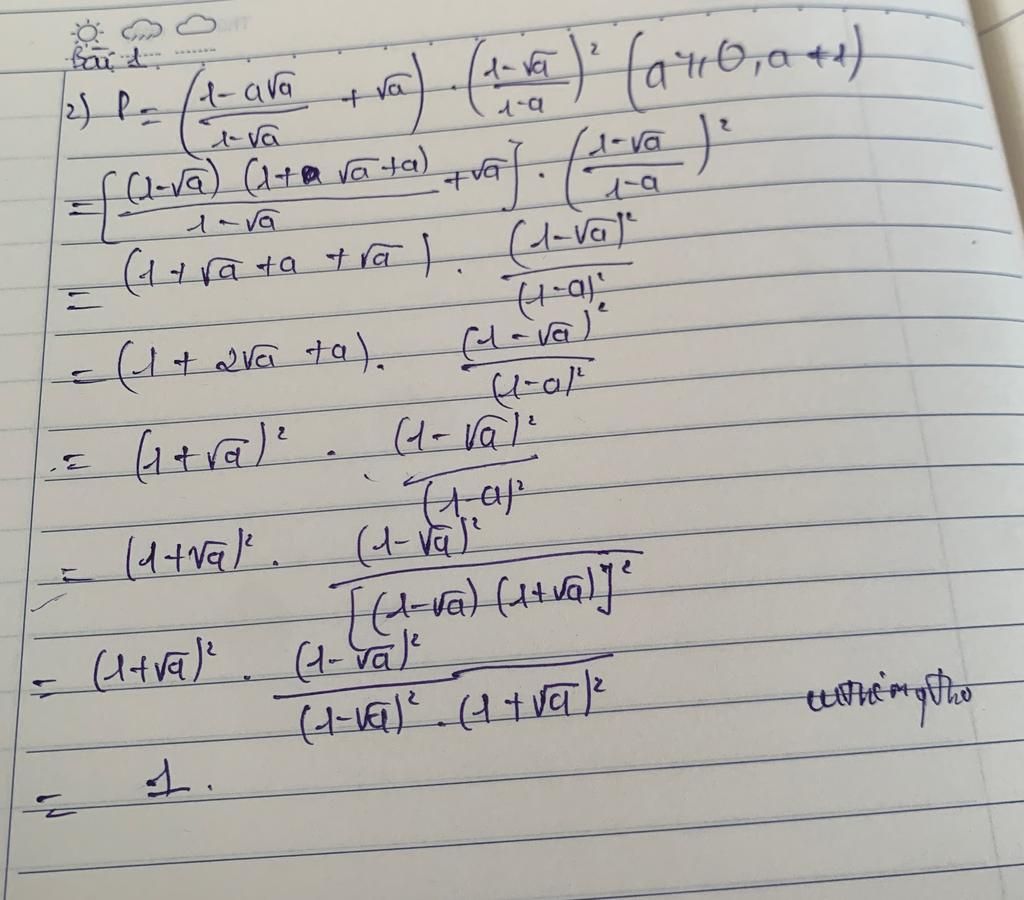 Bài 1
2) P = ((1-a√a)/(1-√a) + √a) . ((1-√a)/(1-a))² (a ≥ 0, a ≠ 1)
= [((1-√a) (1+√a+a))/(1-√a) + √a] . ((1-√a)/(1-a))²
= (1+√a+a+√a) . (1-√a)²/(1-a)²
= (1+2√a+a). (1-√a)²/(1-a)²
= (1+√a)² . (1-√a)²/(1-a)²
= (1+√a)² . (1-√a)²/[(1-√a) (1+√a)]²
= (1+√a)² . (1-√a)²/((1-√a)² . (1+√a)²)
= 1.